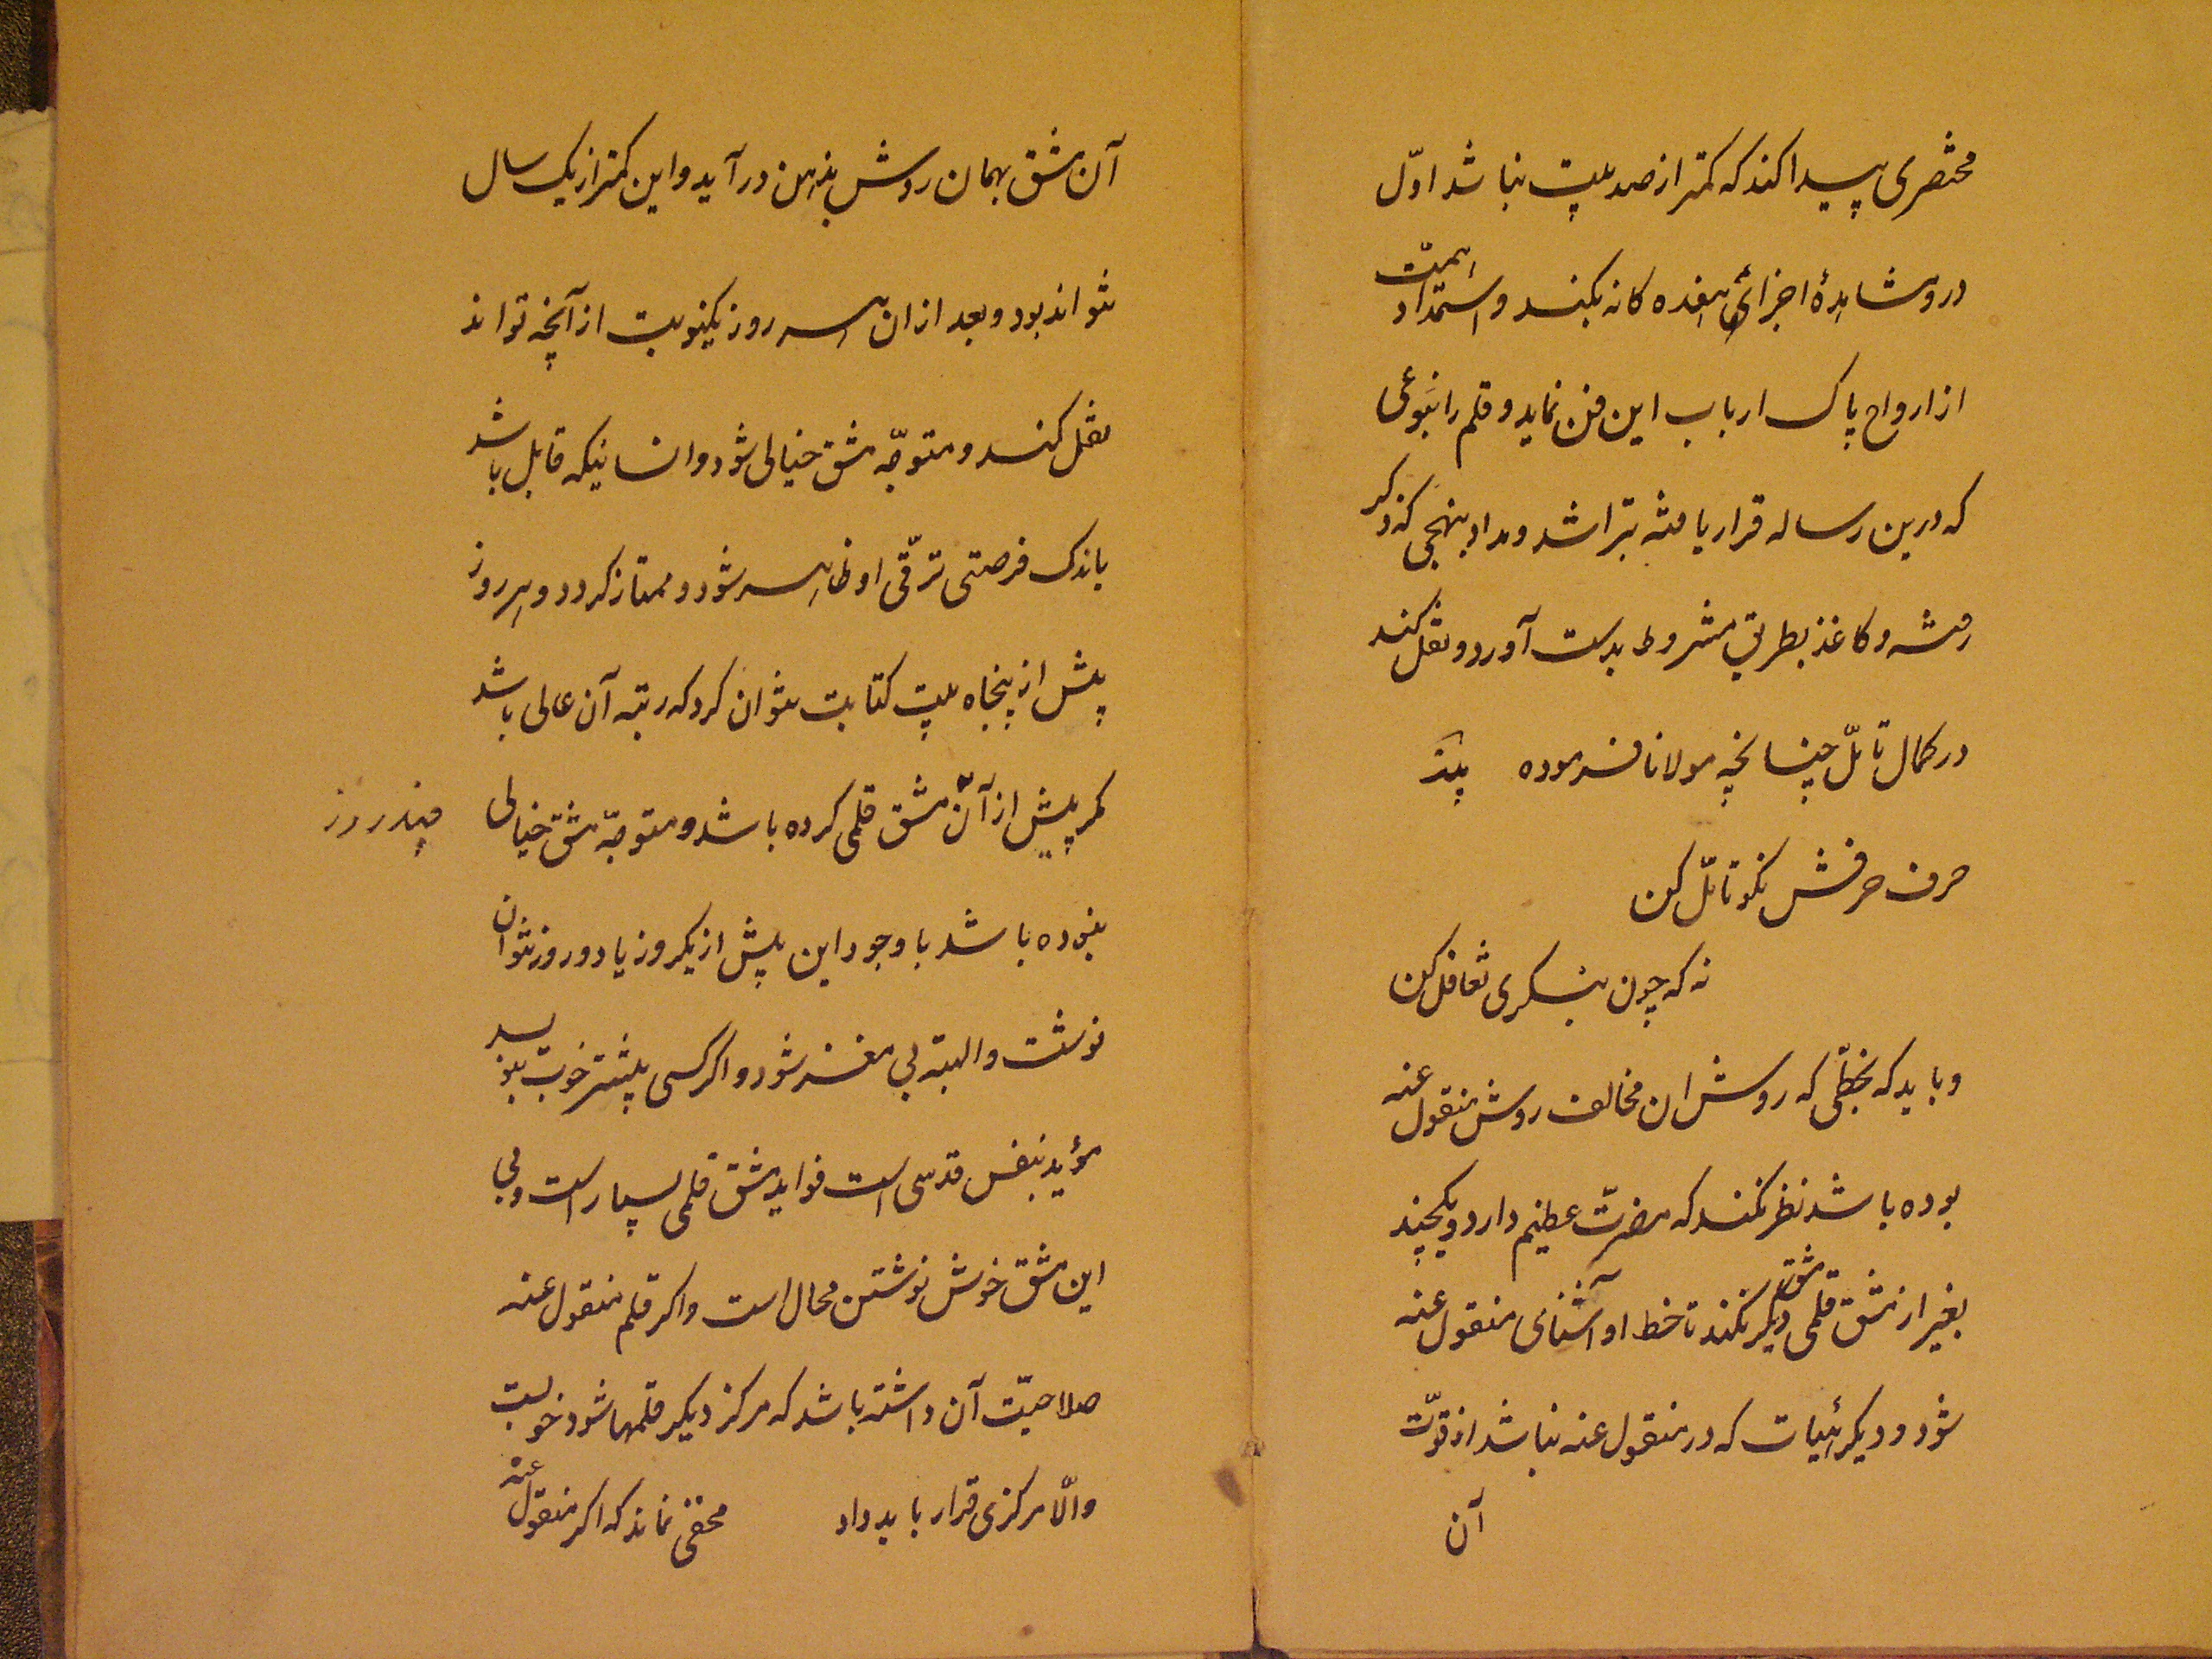 مختصری پیدا کند که کمتر از صد بیت نباشد اوّل
در مشاهدهٔ اجزائی هفده کانه بکند و استمداد همّت
از ارواح پاک ارباب این فن نماید و قلم را بنوعی
که درین رساله قرار یافته بتراشد و مداد بنهجی که ذکر
رفته و کاغذ بطریق مشروط بدست آورد و نقل کند
در کمال تامّل چنانچه مولانا فرموده بیت
حرف حرفش نکو تامّل کن
نه که چون بنکری تغافل کن
و باید که بخطّی که روش ان مخالف روش منقول عنه
بوده باشد نظر نکند که مضرّت عظیم دارد و یکچند
بغیر از مشق قلمی مشق دیکر نکند تا خط او آشنای منقول عنه
شود و دیکر ابیات که در منقول عنه نباشد از قوّت
آن
آن مشق بهمان روش بذهن در آید و این کمتر از یک سال
نتواند بود و بعد ازان هر روز یکنوبت از آنچه تواند
نقل کند و متوجّه مشق خیالی شود و انسانیکه قابل باشد
باندک فرصتی ترقّی او ظاهر شود و ممتاز کردد و هر روز
بیش از پنجاه بیت کتابت نتوان کرد که رتبه آن عالی باشد
کر پیش از آن مشق قلمی کرده باشد و متوجّه مشق خیالی
چند روز
نبوده باشد با وجود این بیش از یکروز یا دو روز نتوان
نوشت و البته بی مغز شود و اکر کسی بیشتر خوب بنویسد
مؤید بنفس قدسی است فواید مشق قلمی بسیار است و بی
این مشق خوش نوشتن محال است و اکر قلم منقول عنه
صلاحیّت آن داشته باشد که مرکز دیکر قلمها شود خوبست
و الّا مرکزی قرار باید داد مخفی نماند که اکر منقول عنه